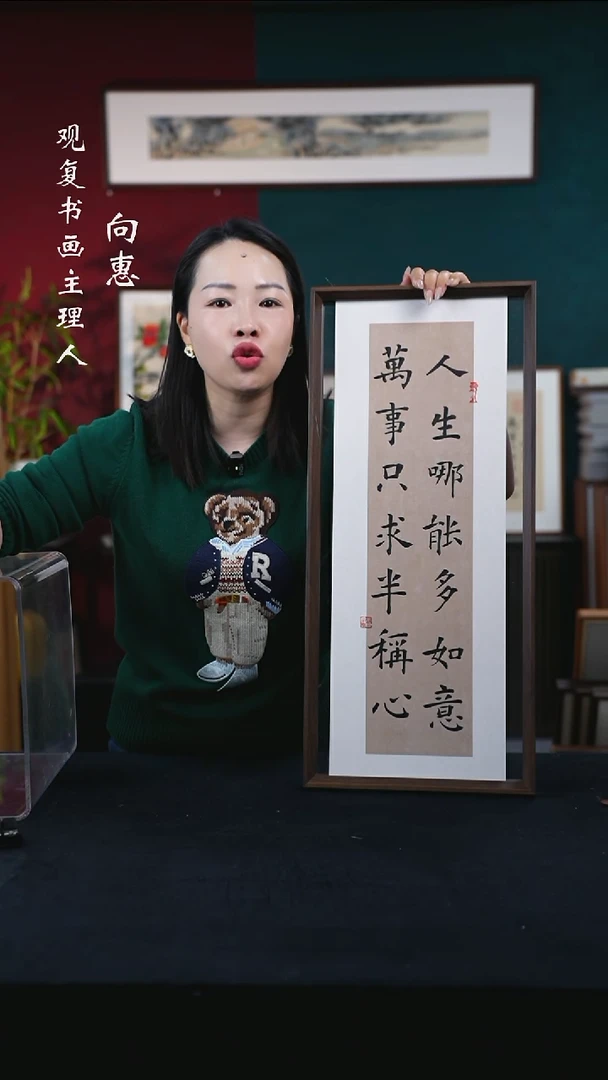 观复书画主理人
向惠
人生哪能多如意
萬事只求半稱心
R